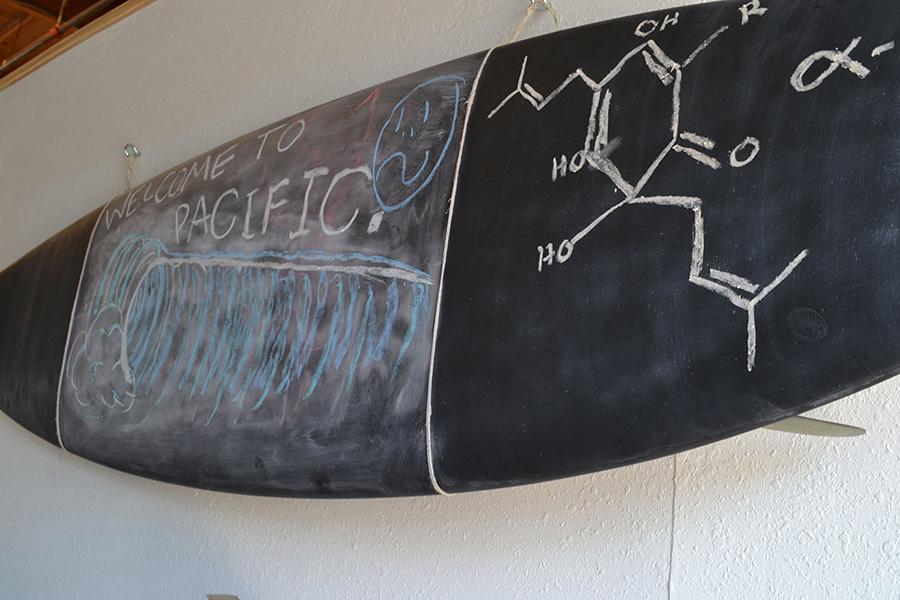 WELCOME TO
PACIFIC!
OH
R
α-
HO
O
HO